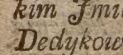 kim Imi
Dedykow